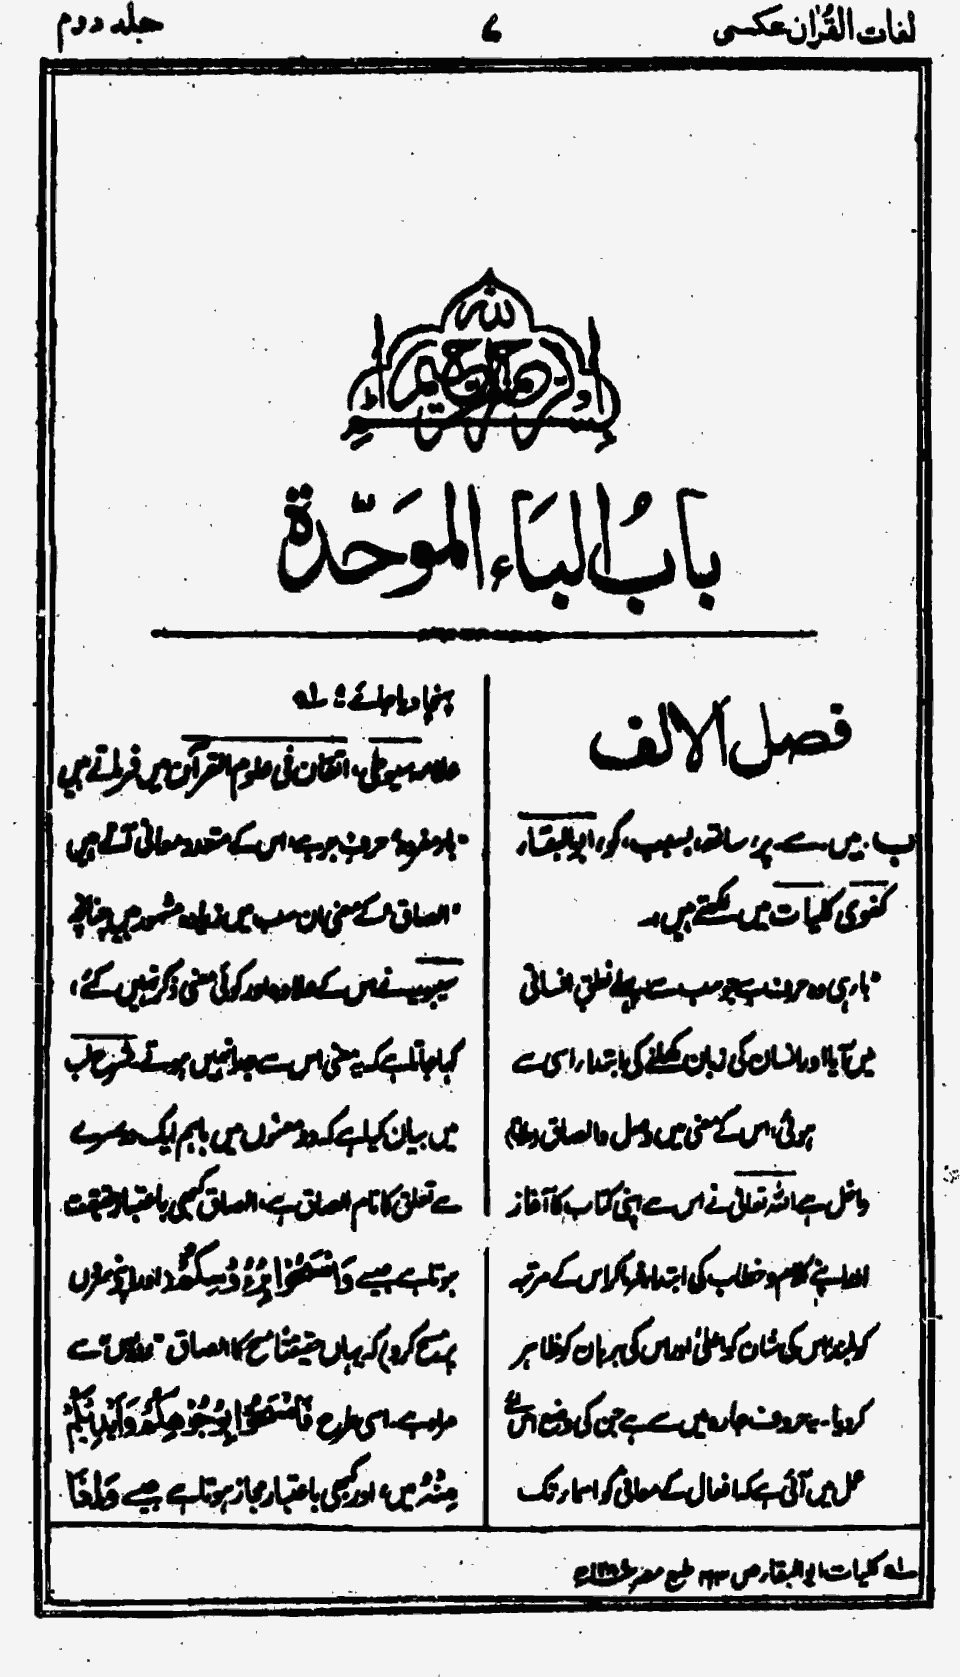 لغات القرآن عکسی
۷
جلد دوم
بسم الله الرحمن الرحیم
باب الباء الموحدة
فصل الالف
ب۔ میں۔ سے۔ پر، ساتھ، بسبب، کو، ابوالبقاء
کفوی کلیات میں لکھتے ہیں:۔
"باء ہی وہ حرف ہے جو سب سے پہلے نطقِ انسانی
میں آیا اور انسان کی زبان کھلنے کی ابتداء اسی سے
ہوئی، اس کے معنی میں وصل والصاق
داخل ہے اللہ تعالیٰ نے اس سے اپنی کتاب کا آغاز
اور اپنے کلام و خطاب کی ابتداء فرما کر اس کے مرتبہ
کو بلند اس کی شان کو اعلیٰ اور اس کی برہان کو ظاہر
کردیا۔ یہ حروف جارہ میں سے ہے جن کی وضع اس لئے
عمل میں آئی ہے کہ افعال کے معانی کو اسماء تک
پہنچا دیا جائے" لہ
علامہ سیوطی، اتقان فی علوم القرآن میں فرماتے ہیں
"باء مفردہ حرف جر ہے، اس کے متعدد معانی آتے ہیں
"الصاق" کے معنی ان سب میں زیادہ مشہور ہیں چنانچہ
سیبویہ نے اس کے علاوہ اور کوئی معنی ذکر نہیں کئے،
کہا جاتا ہے کہ یہ معنی اس سے جدا نہیں ہوتے۔ شرح لب
میں بیان کیا ہے کہ دو معنوں میں باہم ایک دوسرے
سے تعلق کا نام الصاق ہے، الصاق کبھی باعتبار حقیقت
ہوتا ہے جیسے وَامْسَحُوْا بِرُءُوْسِكُمْ اور اپنے سروں
پر مسح کرو) کہ یہاں حقیقتاً مسح کا الصاق سے
مراد ہے۔ اسی طرح فَامْسَحُوْا بِوُجُوْهِكُمْ وَاَيْدِيْكُمْ
مِنْهُ میں، اور کبھی باعتبار مجاز ہوتا ہے جیسے وَاِذَا
لہ کلیات ابو البقاء ص طبع مصر